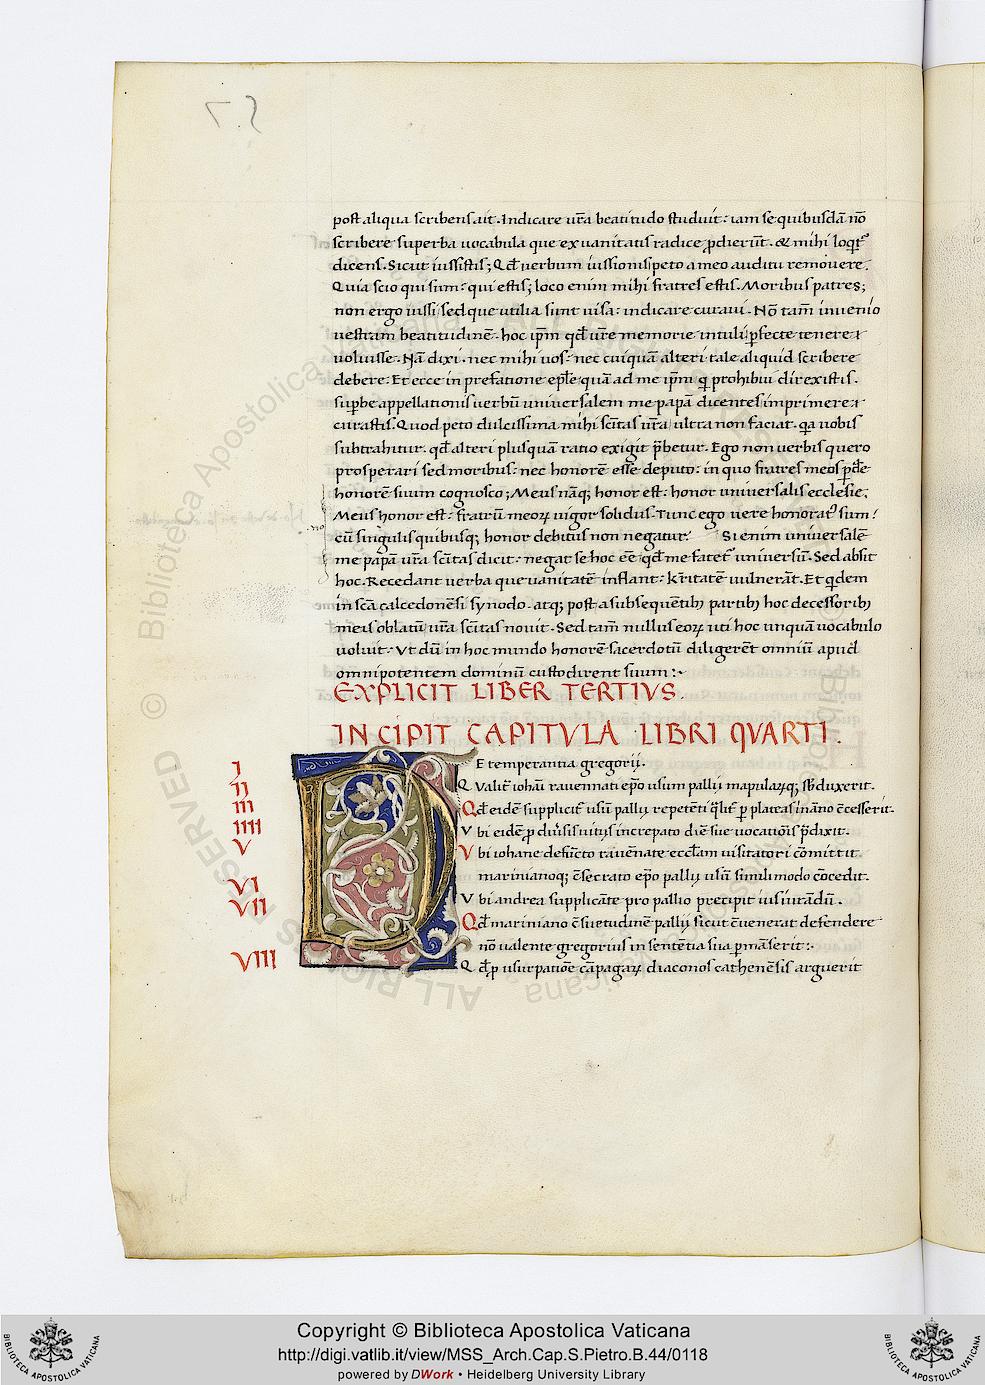 post aliqua scribens ait. Indicare ur̄a beatitudo studuit: iam se quibusdā nō
scribere superba uocabula que ex uanitatis radice ꝓdierūt. & mihi loqr̄
dicens. Sicut iussistis; Qd̄ uerbum iussionis peto a meo auditu remouere.
Quia scio qui sum: qui estis; loco enim mihi fratres estis. Moribus patres;
non ergo iussi sed que utilia sunt uisa: indicare curaui. Nō tam̄ inuenio
uestram beatitudinē. hoc ip̄m qd̄ ur̄e memorie intuli ꝑfecte tenere
uoluisse. Nā dixi. nec mihi uos: nec cuiquā alteri tale aliquid scribere
debere: Et ecce in prefatione ep̄le quā ad me ip̄m q prohibui direxistis.
suꝑbe appellationis uerbū uniuersalem me papā dicentes imprimere
curastis. Quod peto dulcissima mihi sc̄itas ur̄a ultra non faciat. qa uobis
subtrahitur. qd̄ alteri plusquā ratio exigit p̄betur. Ego non uerbis quero
prosperari sed moribus: nec honorē esse deputo: in quo fratres meos ꝑdē
honorē suum cognosco; Meus nāq; honor est: honor uniuersalis ecclesie;
Meus honor est: fratrū meoꝝ uigor solidus. Tunc ego uere honorat᾽ sum:
cū singulis quibusq; honor debitus non negatur: Si enim uniuersalē
me papā ur̄a sc̄itas dicit: negat se hoc eē qd̄ me fatet᾽ uniuersū. Sed absit
hoc. Recedant uerba que uanitatē inflant: kr̄itatē uulnerāt. Et qdem
in sc̄a calcedonēsi synodo. atq; post a subsequentib; patrib; hoc decessorib;
meis oblatū ur̄a sc̄itas nouit. Sed tam̄ nullus eoꝝ uti hoc unquā uocabulo
uoluit: Ut dū in hoc mundo honorē sacerdotū diligerēt omniū apud
omnipotentem dominū custodirent suum:·
EXPLICIT LIBER TERTIVS.
INCIPIT CAPITVLA LIBRI QVARTI.
I E temperantia gregorij.
II Qualit᾽ iohāi rauennati ep̄o usum pallij mapulaꝝq; sb̄duxerit.
III Qd̄ eidē supplicit᾽ usū pallij repetēti qlit᾽ ꝑ plateas inano c̄cesserit.
IIII Vbi eidē ꝓ diuīsis uitijs increpato diē sue uocatiōis p̄dixit.
V Vbi iohane defūcto rauēnate ecclām uisitatori cōmittit.
marinianoq; c̄secrato ep̄o pallij usū simili modo cōcedit.
VI Vbi andrea supplicāte pro pallio precipit iusiurādū.
VII Qd̄ mariniano c̄suetudinē pallij sicut c̄uenerat defendere
nō ualente gregorius in sententia sua ꝑmāserit:·
VIII Qd̄ ꝓ usurpatiōe cāpagaꝝ diaconos cathenēsis arguerit
Copyright © Biblioteca Apostolica Vaticana
http://digi.vatlib.it/view/MSS_Arch.Cap.S.Pietro.B.44/0118
powered by DWork • Heidelberg University Library